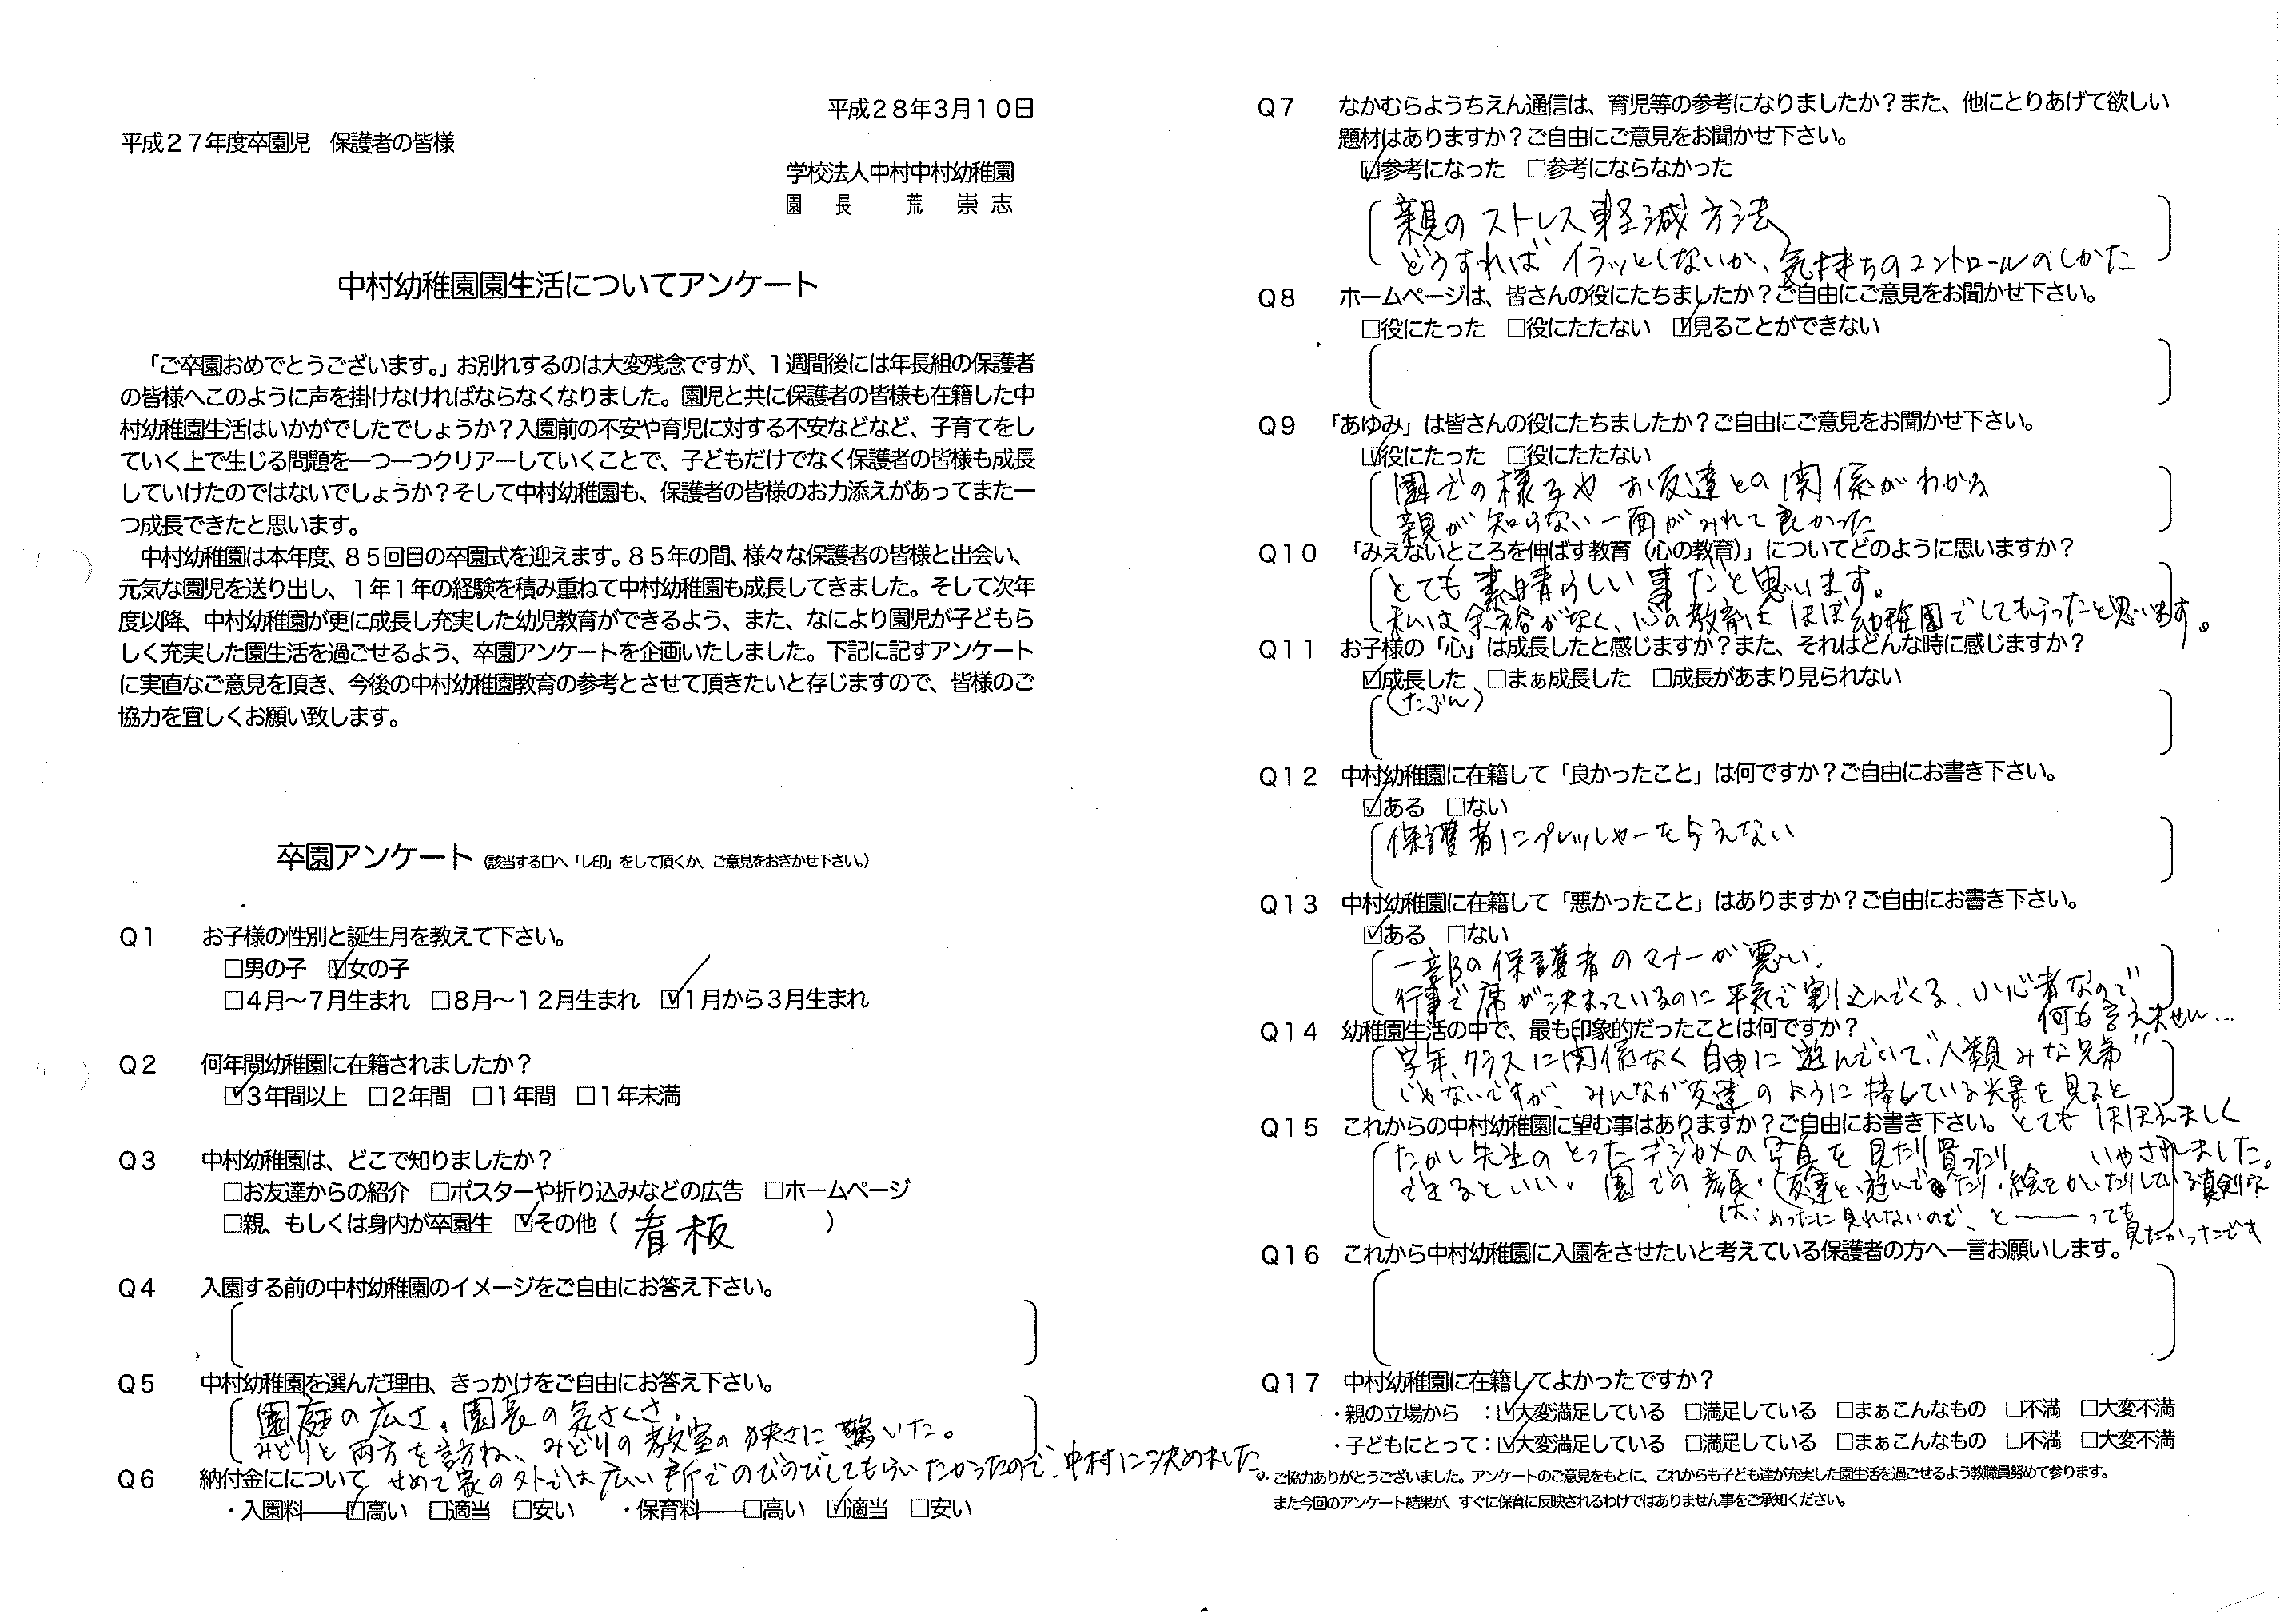 平成２８年３月１０日
平成２７年度卒園児　保護者の皆様
学校法人中村中村幼稚園
園　長　　荒　崇志
中村幼稚園園生活についてアンケート
「ご卒園おめでとうございます。」お別れするのは大変残念ですが、１週間後には年長組の保護者
の皆様へこのように声を掛けなければならなくなりました。園児と共に保護者の皆様も在籍した中
村幼稚園生活はいかがでしたでしょうか？入園前の不安や育児に対する不安などなど、子育てをし
ていく上で生じる問題を一つ一つクリアーしていくことで、子どもだけでなく保護者の皆様も成長
していけたのではないでしょうか？そして中村幼稚園も、保護者の皆様のお力添えがあってまた一
つ成長できたと思います。
中村幼稚園は本年度、８５回目の卒園式を迎えます。８５年の間、様々な保護者の皆様と出会い、
元気な園児を送り出し、１年１年の経験を積み重ねて中村幼稚園も成長してきました。そして次年
度以降、中村幼稚園が更に成長し充実した幼児教育ができるよう、また、なにより園児が子どもら
しく充実した園生活を過ごせるよう、卒園アンケートを企画いたしました。下記に記すアンケート
に実直なご意見を頂き、今後の中村幼稚園教育の参考とさせて頂きたいと存じますので、皆様のご
協力を宜しくお願い致します。
卒園アンケート（該当する□へ「レ印」をして頂くか、ご意見をおきかせ下さい。）
Ｑ１　お子様の性別と誕生月を教えて下さい。
□男の子　☑女の子
□４月～７月生まれ　□８月～１２月生まれ　☑１月から３月生まれ
Ｑ２　何年間幼稚園に在籍されましたか？
☑３年間以上　□２年間　□１年間　□１年未満
Ｑ３　中村幼稚園は、どこで知りましたか？
□お友達からの紹介　□ポスターや折り込みなどの広告　□ホームページ
□親、もしくは身内が卒園生　☑その他（看板）
Ｑ４　入園する前の中村幼稚園のイメージをご自由にお答え下さい。
Ｑ５　中村幼稚園を選んだ理由、きっかけをご自由にお答え下さい。
園庭の広さ。園長の気さくさ。
みどりと両方を訪ね、みどりの教室の狭さに驚いた。
せめて家の外では広い所でのびのびしてもらいたかったので、中村に決めました。
Ｑ６　納付金にについて
・入園料――☑高い　□適当　□安い　・保育料――□高い　☑適当　□安い
Ｑ７　なかむらようちえん通信は、育児等の参考になりましたか？また、他にとりあげて欲しい
題材はありますか？ご自由にご意見をお聞かせ下さい。
☑参考になった　□参考にならなかった
親のストレス軽減方法
どうすればイラッとしないか、気持ちのコントロールのしかた
Ｑ８　ホームページは、皆さんの役にたちましたか？ご自由にご意見をお聞かせ下さい。
□役にたった　□役にたたない　☑見ることができない
Ｑ９　「あゆみ」は皆さんの役にたちましたか？ご自由にご意見をお聞かせ下さい。
☑役にたった　□役にたたない
園での様子や お友達との関係がわかる
親が知らない一面がみれて良かった
Ｑ１０　「みえないところを伸ばす教育（心の教育）」についてどのように思いますか？
とても素晴らしい事だと思います。
私は余裕がなく、心の教育はほぼ幼稚園でしてもらったと思います。
Ｑ１１　お子様の「心」は成長したと感じますか？また、それはどんな時に感じますか？
☑成長した　□まぁ成長した　□成長があまり見られない
（たぶん）
Ｑ１２　中村幼稚園に在籍して「良かったこと」は何ですか？ご自由にお書き下さい。
☑ある　□ない
保護者にプレッシャーを与えない
Ｑ１３　中村幼稚園に在籍して「悪かったこと」はありますか？ご自由にお書き下さい。
☑ある　□ない
一部の保護者のマナーが悪い。
行事で席が決まっているのに平気で割り込んでくる、小心者なので
何も言えません…
Ｑ１４　幼稚園生活の中で、最も印象的だったことは何ですか？
学年、クラスに関係なく自由に遊んでいて、"人類みな兄弟"
じゃないですが、みんなが友達のように接している光景を見ると
とてもほほえましく
いやされました。
Ｑ１５　これからの中村幼稚園に望む事はありますか？ご自由にお書き下さい。
たかし先生のとったデジカメの写真を見たり買ったり
できるといい。園での顔・（友達と遊んでたり・絵をかいたりしている真剣な
は、めったに見れないので、と――っても
見たかったです
Ｑ１６　これから中村幼稚園に入園をさせたいと考えている保護者の方へ一言お願いします。
Ｑ１７　中村幼稚園に在籍してよかったですか？
・親の立場から　：☑大変満足している　□満足している　□まぁこんなもの　□不満　□大変不満
・子どもにとって：☑大変満足している　□満足している　□まぁこんなもの　□不満　□大変不満
ご協力ありがとうございました。アンケートのご意見をもとに、これからも子ども達が充実した園生活を過ごせるよう教職員努めて参ります。
また今回のアンケート結果が、すぐに保育に反映されるわけではありません事をご承知ください。